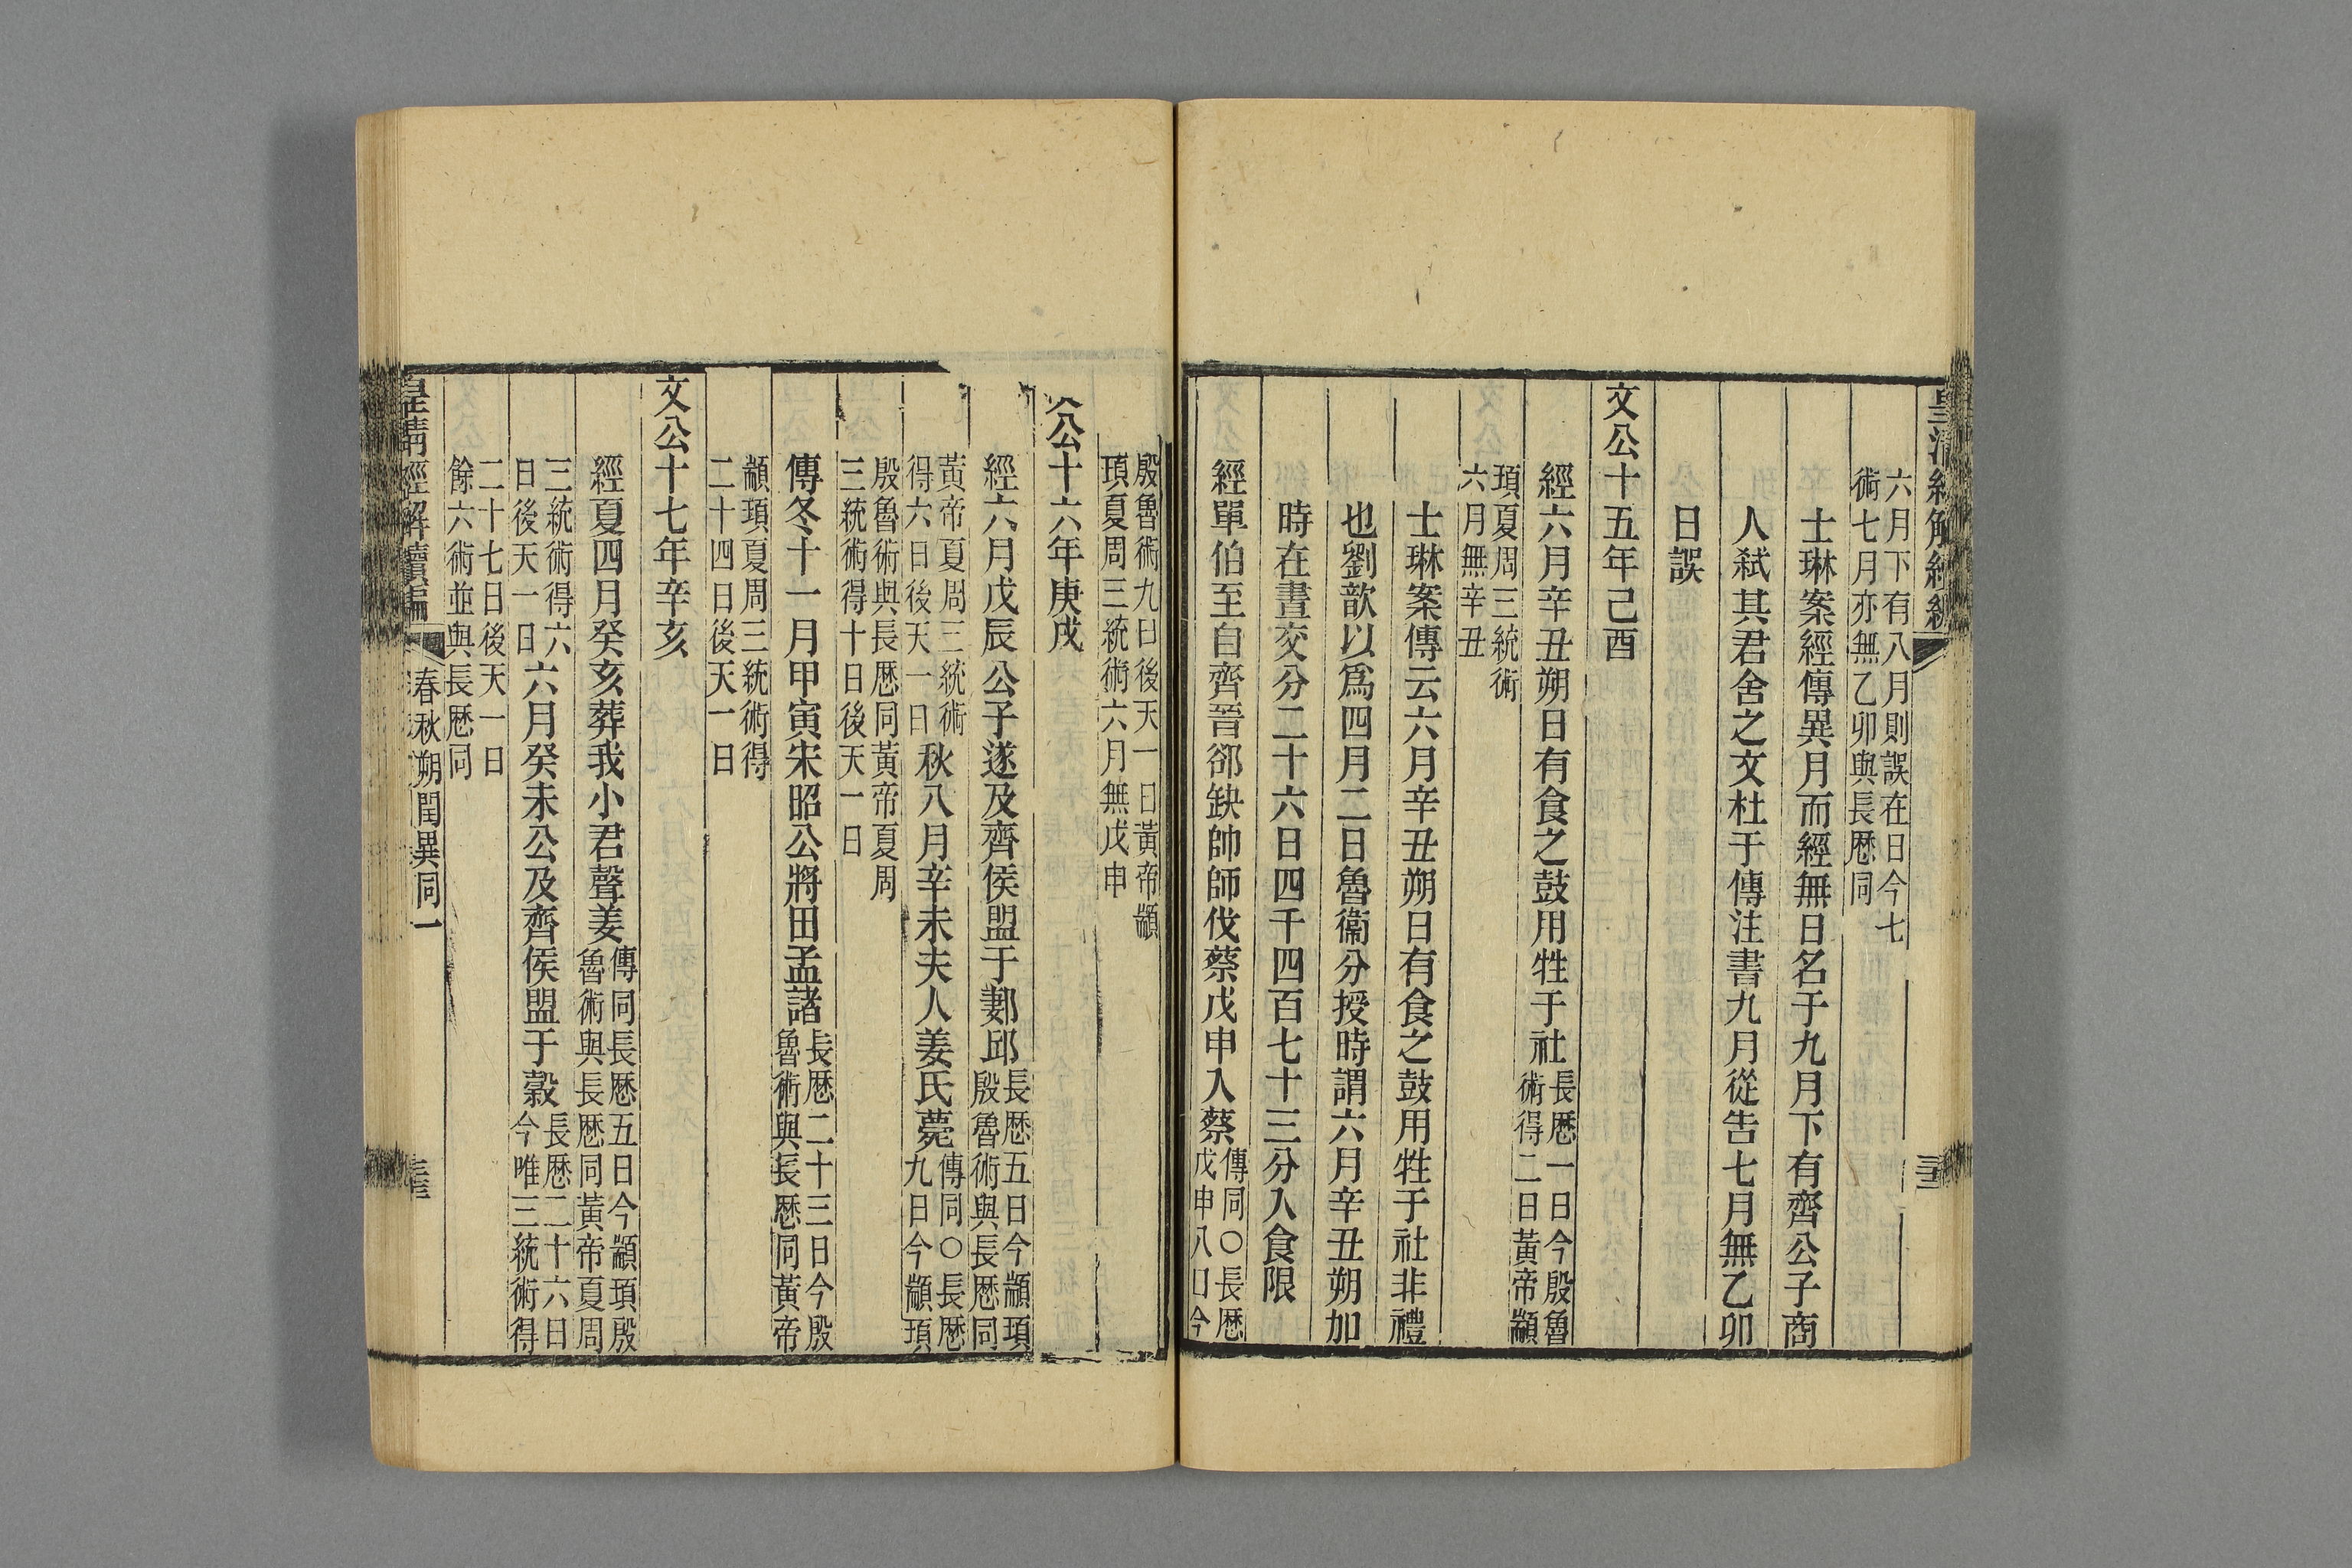 皇清經解續編
六月下有八月則誤在日今七
術七月亦無乙卯與長厯同
士琳案經傳異月而經無日名于九月下有齊公子商
人弒其君舍之文杜于傳注書九月從告七月無乙卯
日誤
文公十五年己酉
經六月辛丑朔日有食之鼓用牲于社
長厯一日今殷魯
術得二日黃帝顓
頊夏周三統術
六月無辛丑
士琳案傳云六月辛丑朔日有食之鼓用牲于社非禮
也劉歆以爲四月二日魯衞分授時謂六月辛丑朔加
時在晝交分二十六日四千四百七十三分入食限
經單伯至自齊晉郤缺帥師伐蔡戊申入蔡
傳同○長厯
戊申八日今
殷魯術九日後天一日黃帝顓
頊夏周三統術六月無戊申
文公十六年庚戌
經六月戊辰公子遂及齊侯盟于郪邱
長厯五日今顓頊
殷魯術與長厯同
黃帝夏周三統術
得六日後天一日
秋八月辛未夫人姜氏薨
傳同○長厯
九日今顓頊
殷魯術與長厯同黃帝夏周
三統術得十日後天一日
傳冬十一月甲寅宋昭公將田孟諸
長厯二十三日今殷
魯術與長厯同黃帝
顓頊夏周三統術得
二十四日後天一日
文公十七年辛亥
經夏四月癸亥葬我小君聲姜
傳同長厯五日今顓頊殷
魯術與長厯同黃帝夏周
三統術得六
日後天一日
六月癸未公及齊侯盟于穀
長厯二十六日
今唯三統術得
二十七日後天一日
餘六術並與長厯同
皇清經解續編
春秋朔閏異同一